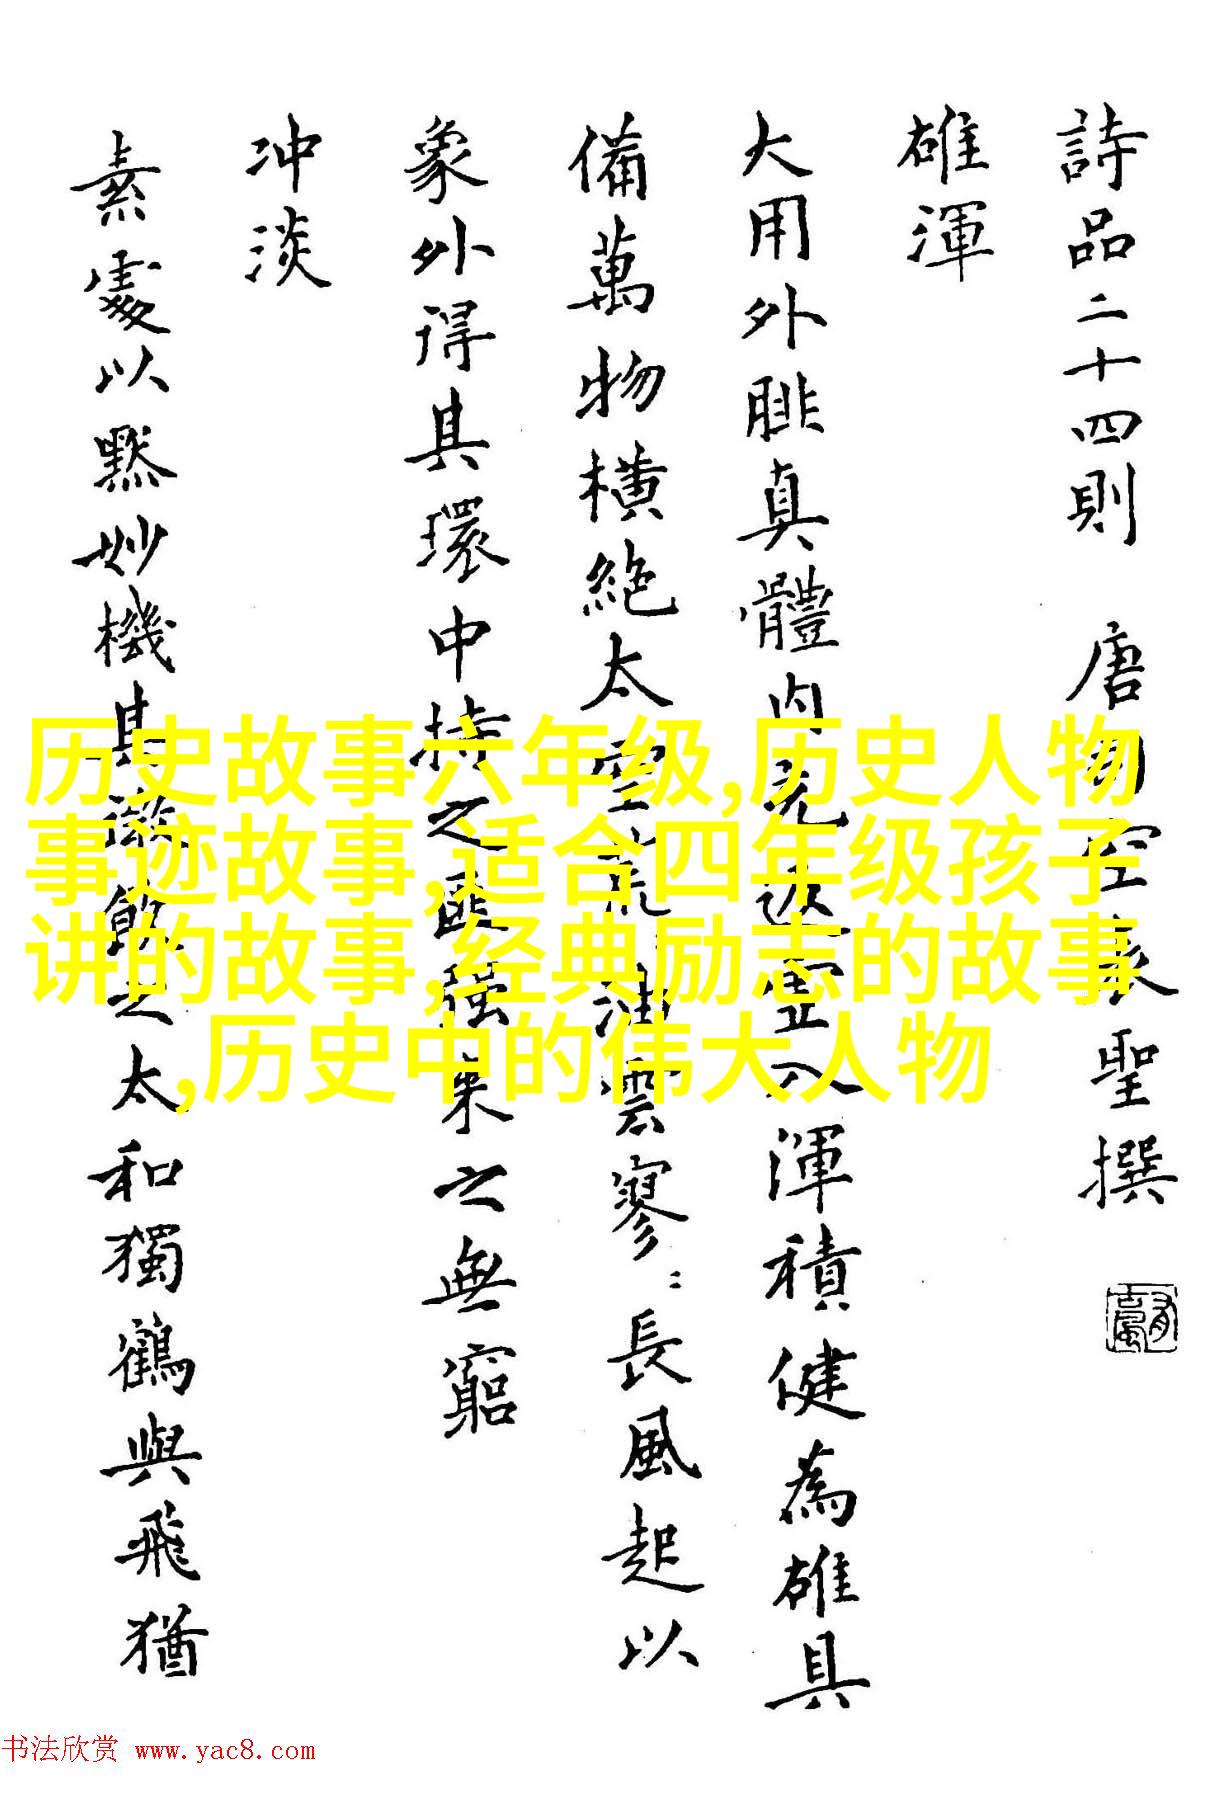 詩品二十四則 唐司空表聖撰
雄渾
大用外腓真體内充返虛入渾積健為雄具
備萬物橫絕太空荒荒油雲寥〻長風起以
象外得其環中持之匪強来之無窮
冲淡
素處以默妙機其微飲之太和獨鶴與飛猶
历史故事六年级,历史人物
事迹故事,适合四年级孩子
讲的故事,经典励志的故事
,历史中的伟大人物
书法欣赏 www.yac8.com